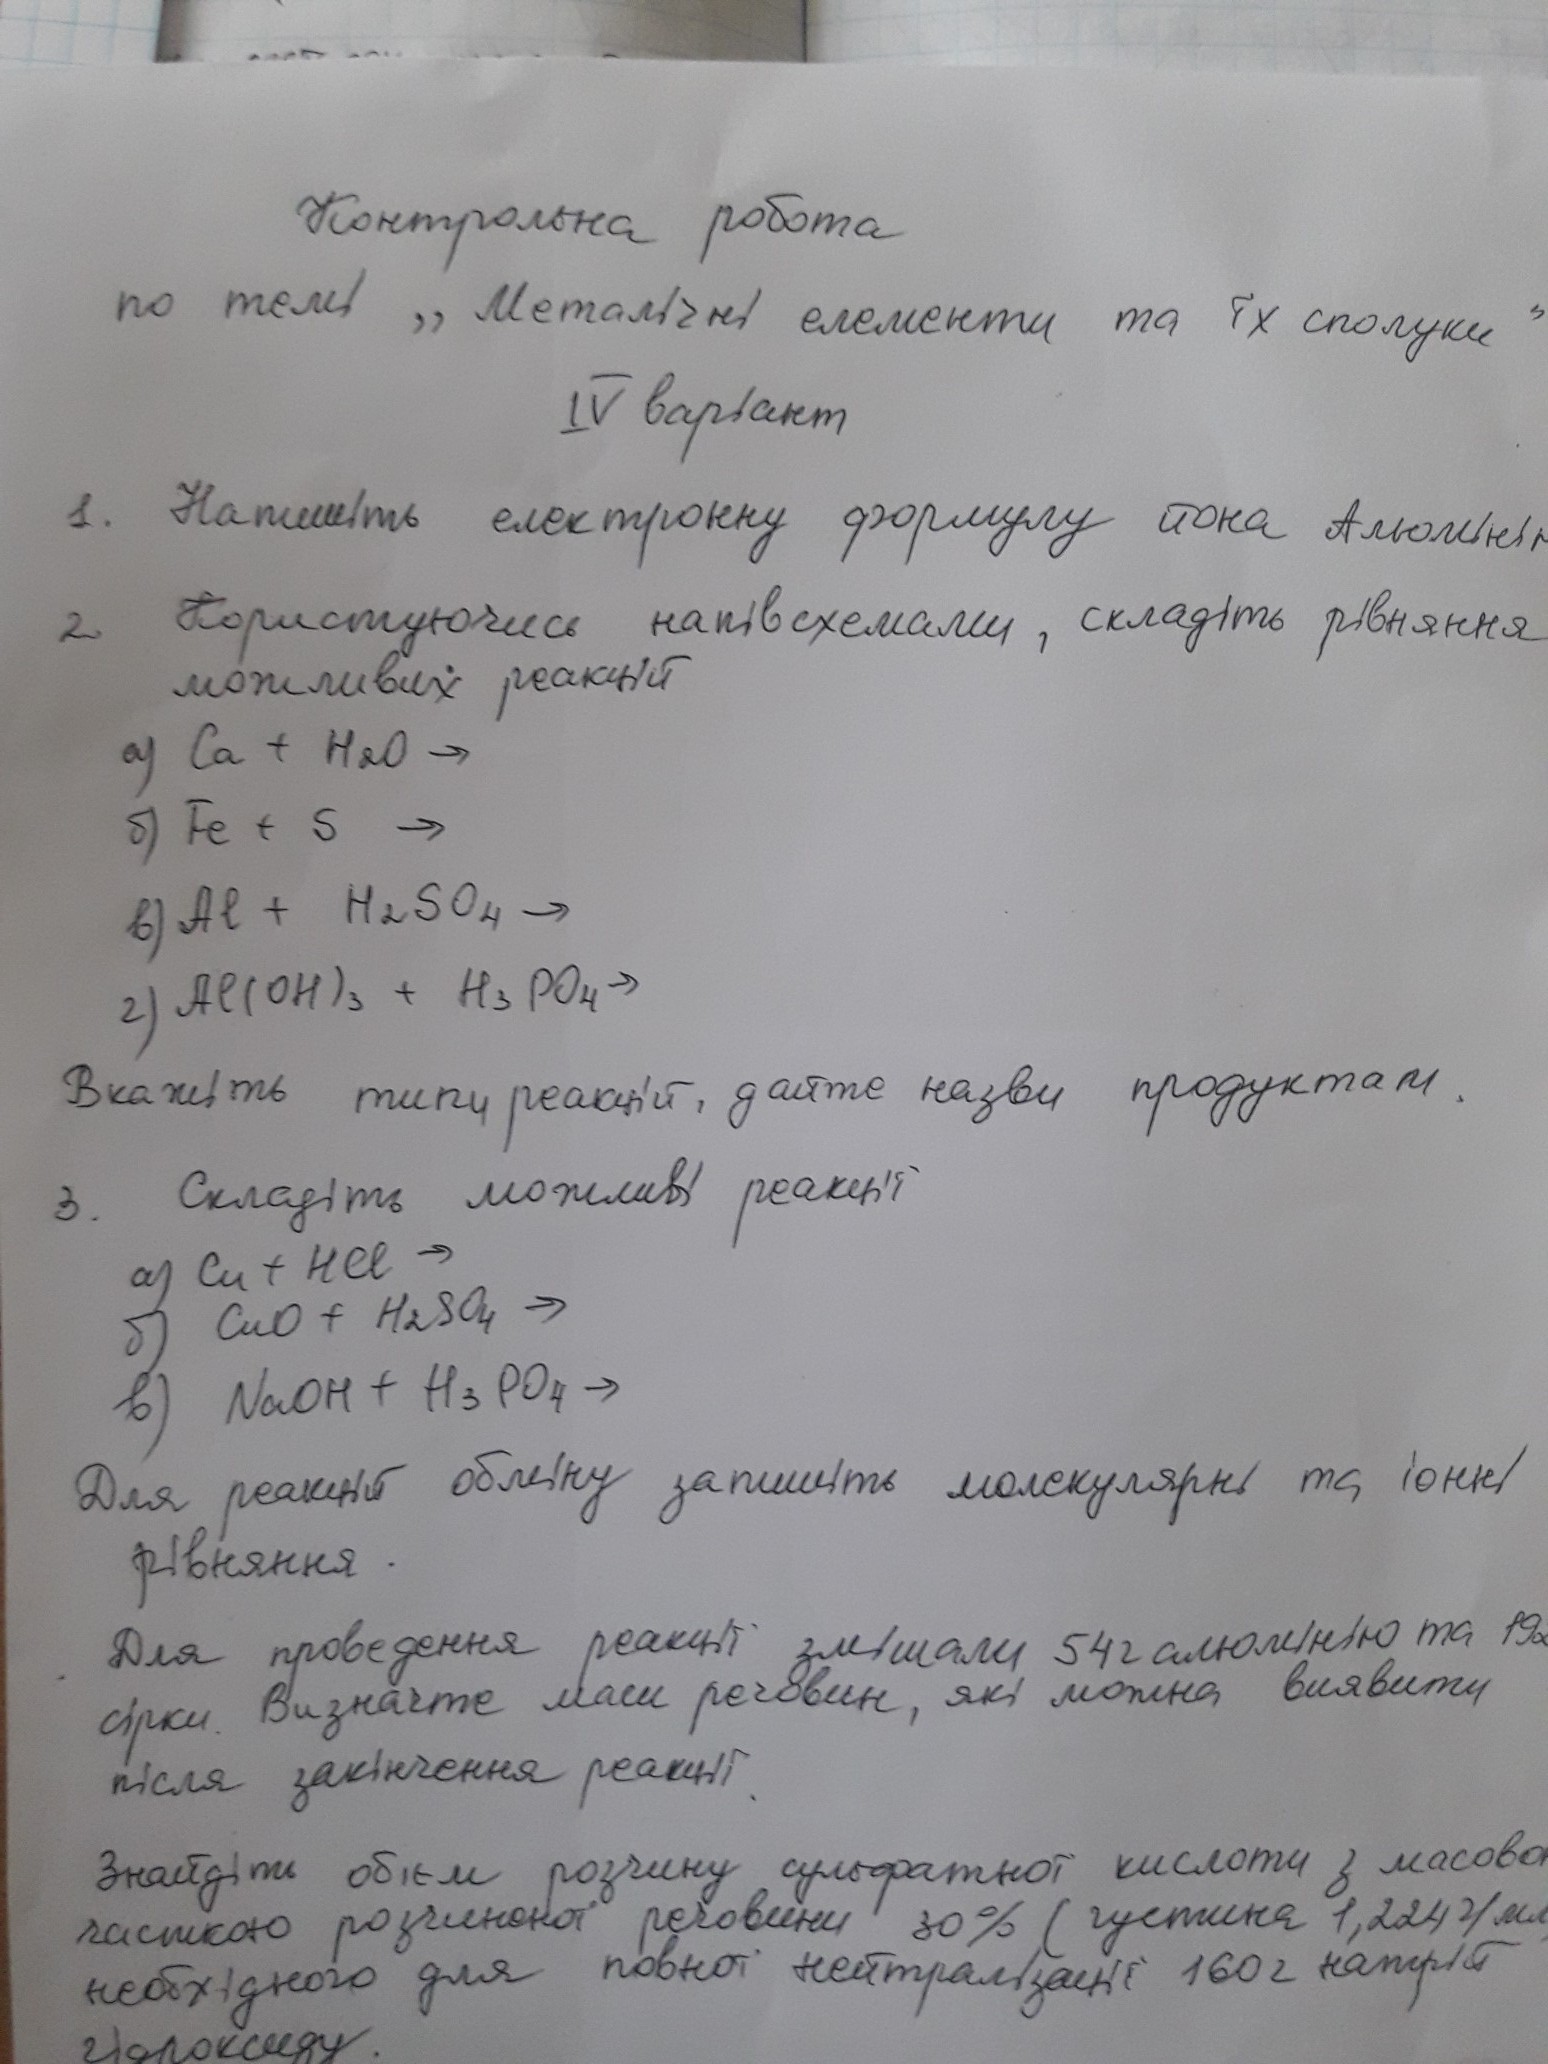 Контрольна робота
по темі „Металічні елементи та їх сполуки”
IV варіант
1. Напишіть електронну формулу йона Алюміні
2 Користуючись напівсхемами, складіть рівняння
можливих реакцій
а) Ca + H2O →
б) Fe + S →
в) Al + H2SO4 →
г) Al(OH)3 + H3PO4 →
Вкажіть типи реакцій, дайте назви продуктам.
3. Складіть можливі реакції
а) Cu + HCl →
б) CuO + H2SO4 →
в) NaOH + H3PO4 →
Для реакцій обміну запишіть молекулярні та іонні
рівняння.
Для проведення реакції змішали 54г алюмінію та 192
сірки. Визначте маси речовин, які можна виявити
після закінчення реакції.
Знайдіть обієм розчину сульфатної кислоти з масово
часткою розчиненої речовини 30% (густина 1,224г/мл
необхідного для повної нейтралізації 160г натрій
гідроксиду.